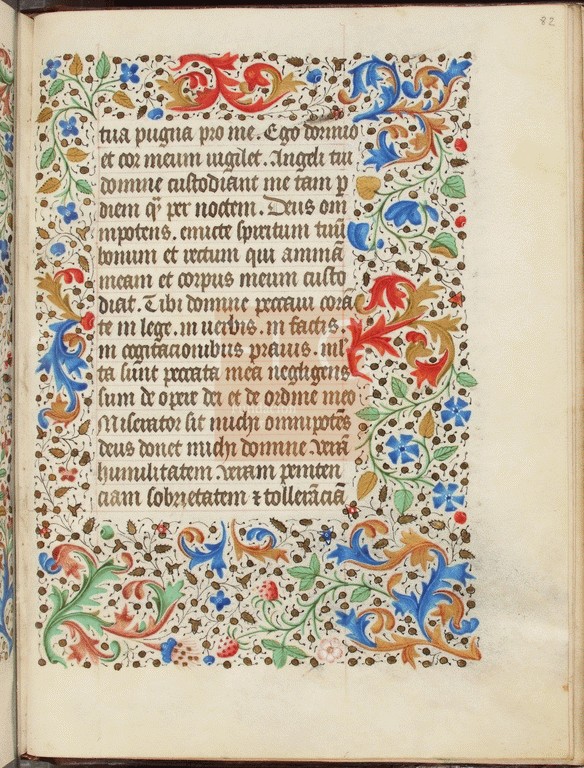 82
tua pugna pro me. Ego dormio
et cor meum uigilet. Angeli tui
domine custodiant me tam p
diem qȝ per noctem. Deus om
nipotens. emicte spiritum tuū
bonum et rectum qui animā
meam et corpus meum custo
diat. Tibi domine peccaui corā
te in lege. in uerbis. in factis.
in cogitacionibus prauis. ml̄
ta sunt peccata mea negligens
sum de opere dei et de ordine meo
Miserator sit michi omnipotēs
deus donet michi domine. verā
humilitatem. veram peniten
ciam sobrietatem ⁊ tollerāciā